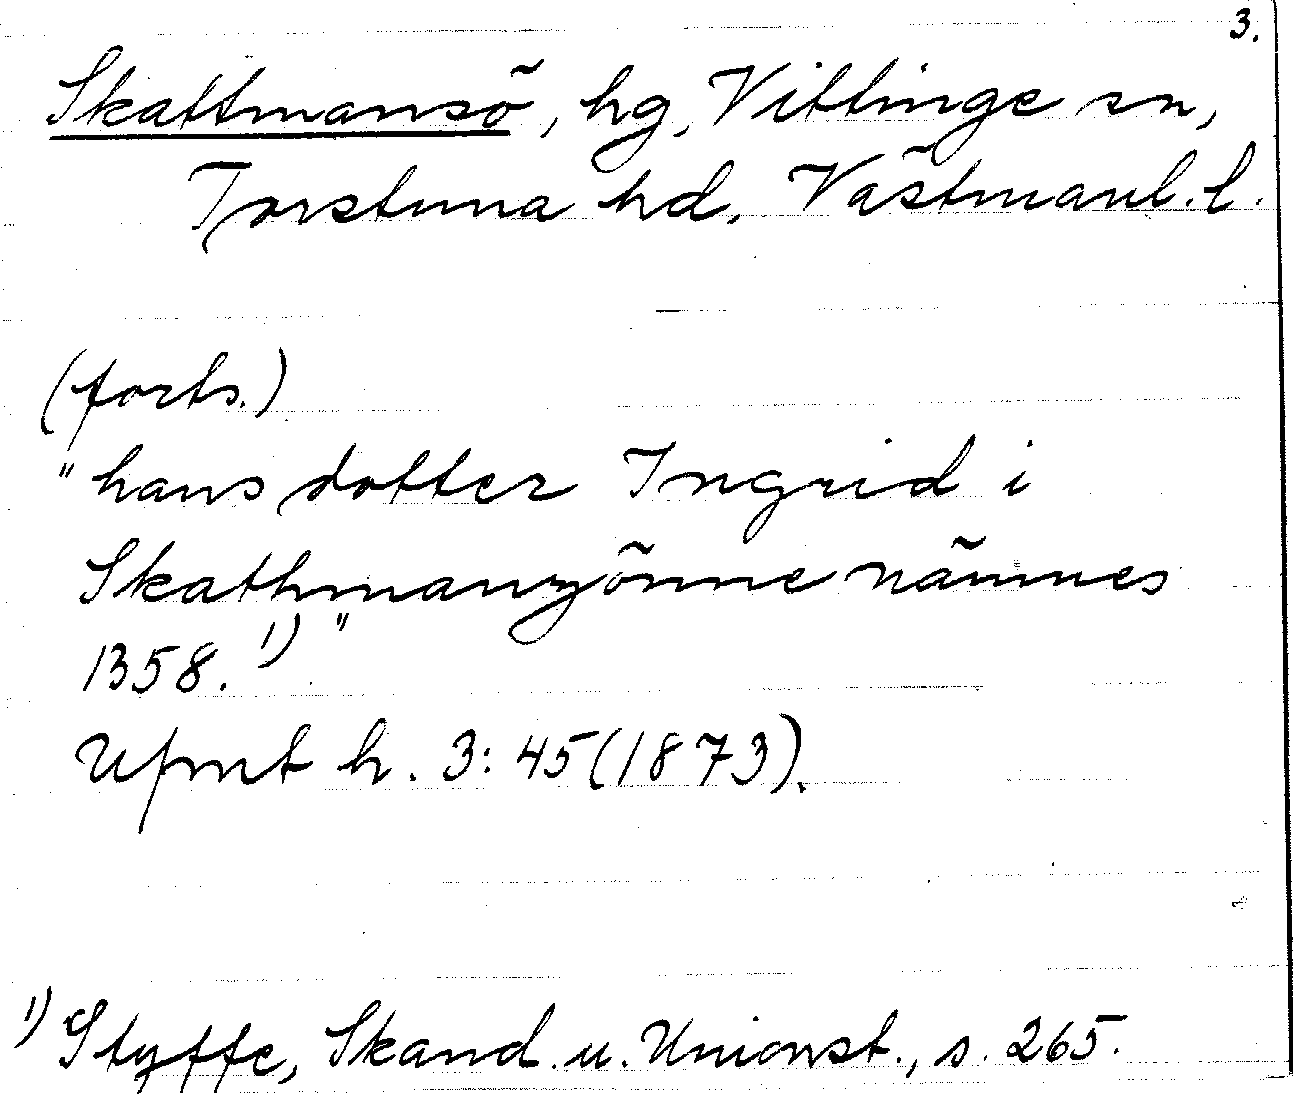 3.
Skattmansö, hg, Vittinge sn,
Torstuna hd, Västmanl. l.
(forts.)
"hans dotter Ingrid i
Skathmanzönne nämnes
1358. 1) "
Upmt h. 3: 45 (1873).
1) Styffe, Skand. u. Unionst., s. 265.